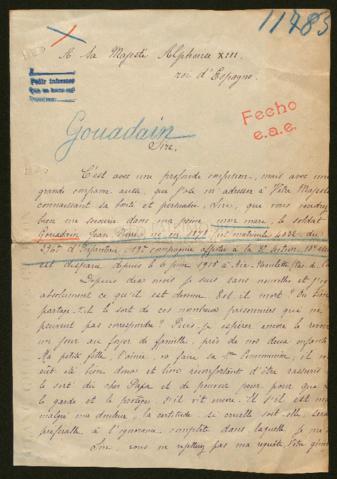 11783
A Sa Majesté Alphonse XIII
roi d'Espagne.
Pedir informes
Fecho
e.a.e.
Gouadain
Sire,
C'est avec une profonde émotion, mais avec une
grande confiance aussi, que j'ose m'adresser à Votre Majesté
connaissant sa bonté et persuadée, Sire, que vous voudrez
bien me secourir dans ma peine, mon mari, le soldat
Gouadain Jean né en 1878
Rgt d'Infanterie, 19e compagnie affecté à la 2e section
est disparu depuis le 6 juin 1918 à
Depuis deux mois je suis sans nouvelles et j'ignore
absolument ce qu'il est devenu. Est-il mort? Ou bien
partage-t-il le sort de ces nombreux prisonniers qui ne
peuvent pas correspondre? Puis-je espérer encore le revoir
un jour au foyer de famille, près de nos deux enfants
Ma petite fille l'aînée, va faire sa 1ère Communion, il
eût été bien doux et bien réconfortant d'être rassurés
le sort du cher Papa et de pouvoir prier pour que
le garde et le protège, s'il vit encore. Et s'il est mort
malgré ma douleur, la certitude, si cruelle soit-elle, serait
préférable à l'ignorance complète dans laquelle je
Sire, vous ne rejetterez pas ma requête, Votre